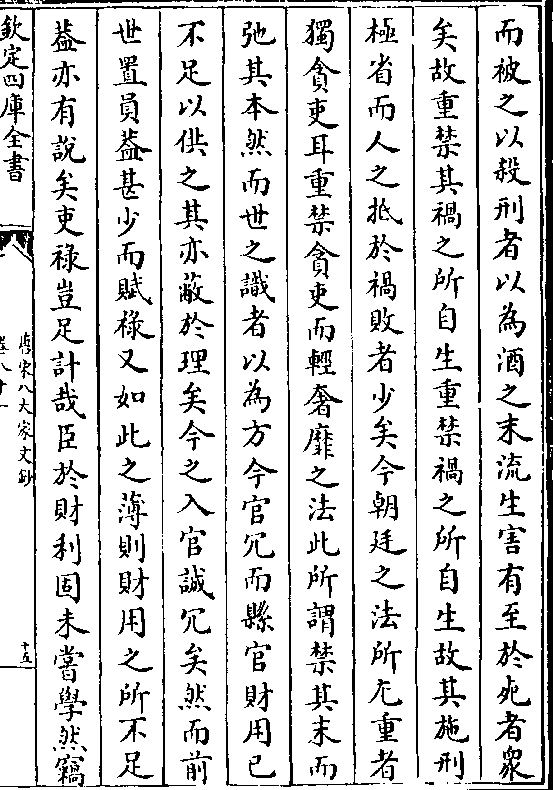 而被之以殺刑者以為酒之末流生害有至於死者衆
矣故重禁其禍之所自生重禁禍之所自生故其施刑
極省而人之抵於禍敗者少矣今朝廷之法所尤重者
獨貪吏耳重禁貪吏而輕奢靡之法此所謂禁其末而
弛其本然而世之識者以為方今官冗而縣官財用已
不足以供之其亦蔽於理矣今之入官誠冗矣然而前
世置員葢甚少而賦祿又如此之薄則財用之所不足
葢亦有說矣吏祿豈足計哉臣於財利固未嘗學然竊
欽定四庫全書
唐宋八大家文鈔
十五